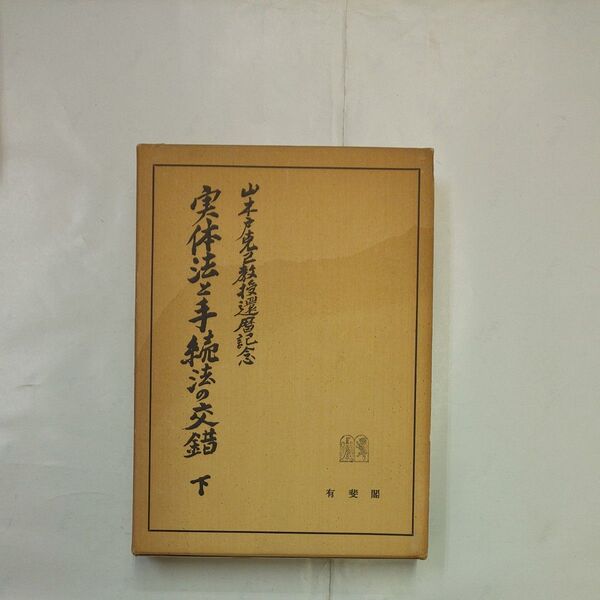 山木戸克己教授還暦記念
実体法と手続法の交錯 下
有斐閣